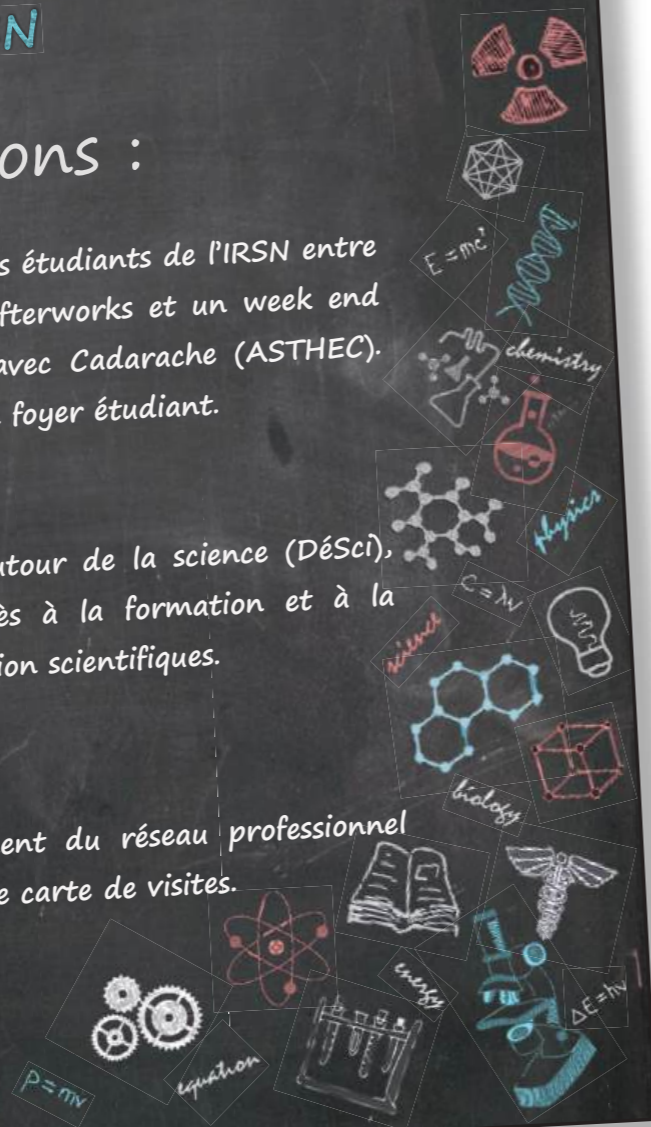 N
ons :
s étudiants de l'IRSN entre
fterworks et un week end
avec Cadarache (ASTHEC).
foyer étudiant.
utour de la science (DéSci),
ès à la formation et à la
ion scientifiques.
ent du réseau professionnel
e carte de visites.
E = mc²
chemistry
physics
C = λν
science
biology
energy
ΔE = hν
equation
P = mv